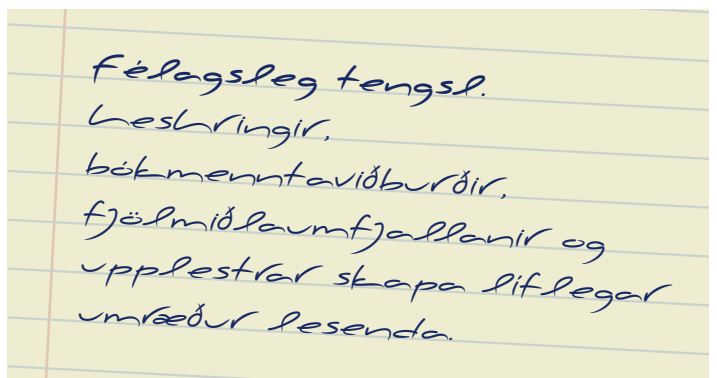 Félagsleg tengsl.
Leshringir,
bókmenntaviðburðir,
fjölmiðlaumfjallanir og
upplestrar skapa líflegar
umræður lesenda.